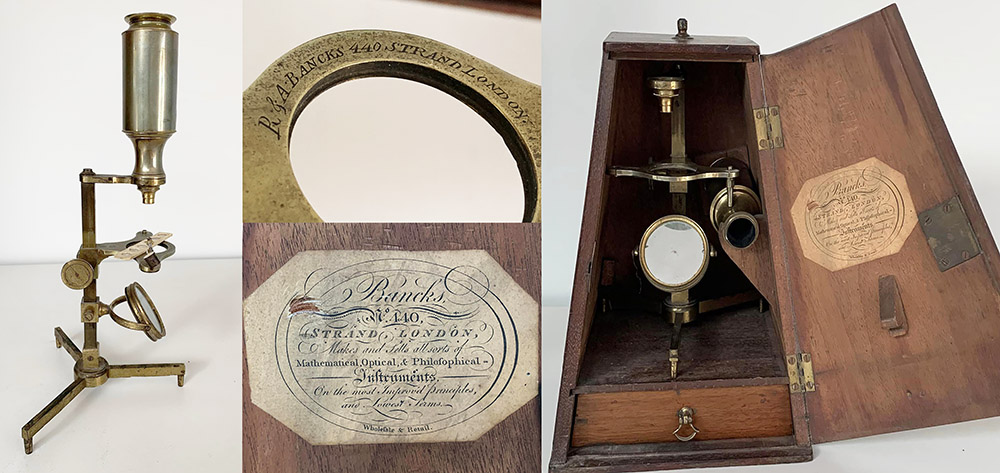 R & A BANCKS 440 STRAND LONDON.
Bancks,
No. 440,
STRAND, LONDON,
Makes and Sells all sorts of
Mathematical, Optical, & Philosophical
Instruments,
On the most Improved Principles,
and Lowest Terms.
Wholesale & Retail.
Bancks,
No. 440,
STRAND, LONDON,
Instruments